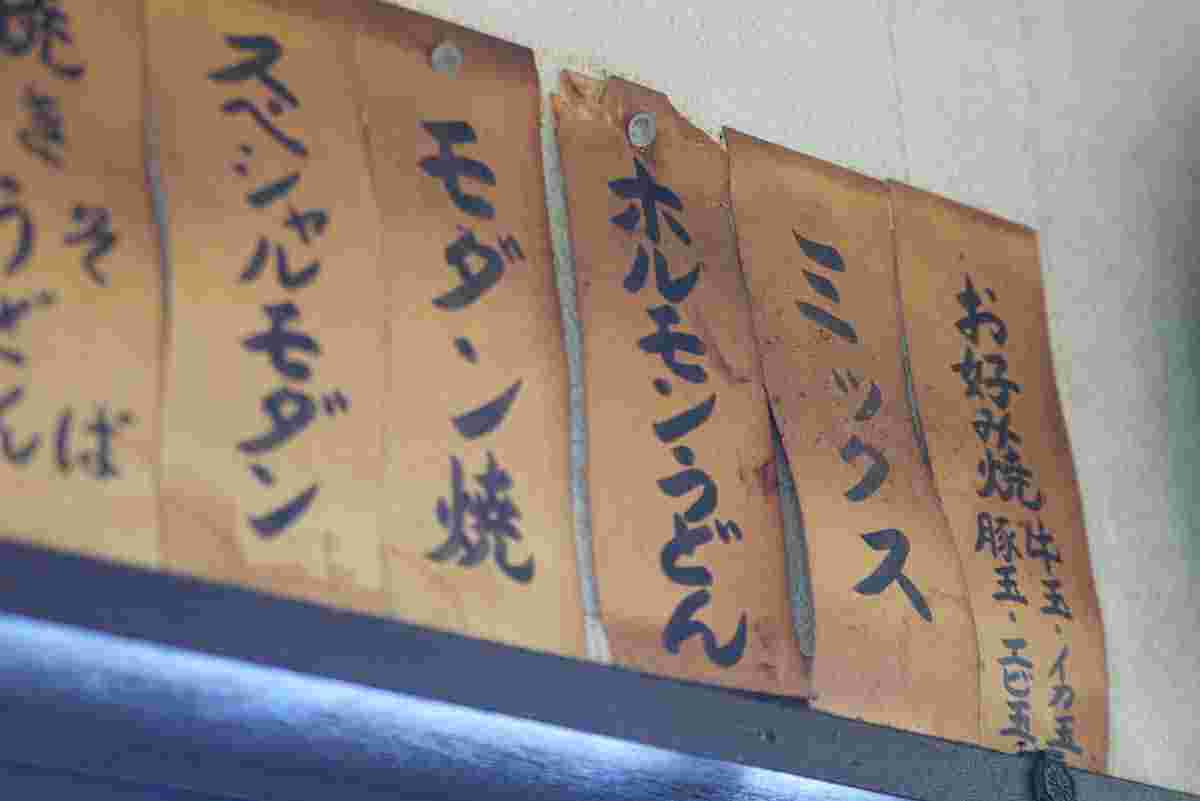 お好み焼
牛玉・イカ玉
豚玉・エビ玉
ミックス
ホルモンうどん
モダン焼
スペシャルモダン
焼き
そば
うどん